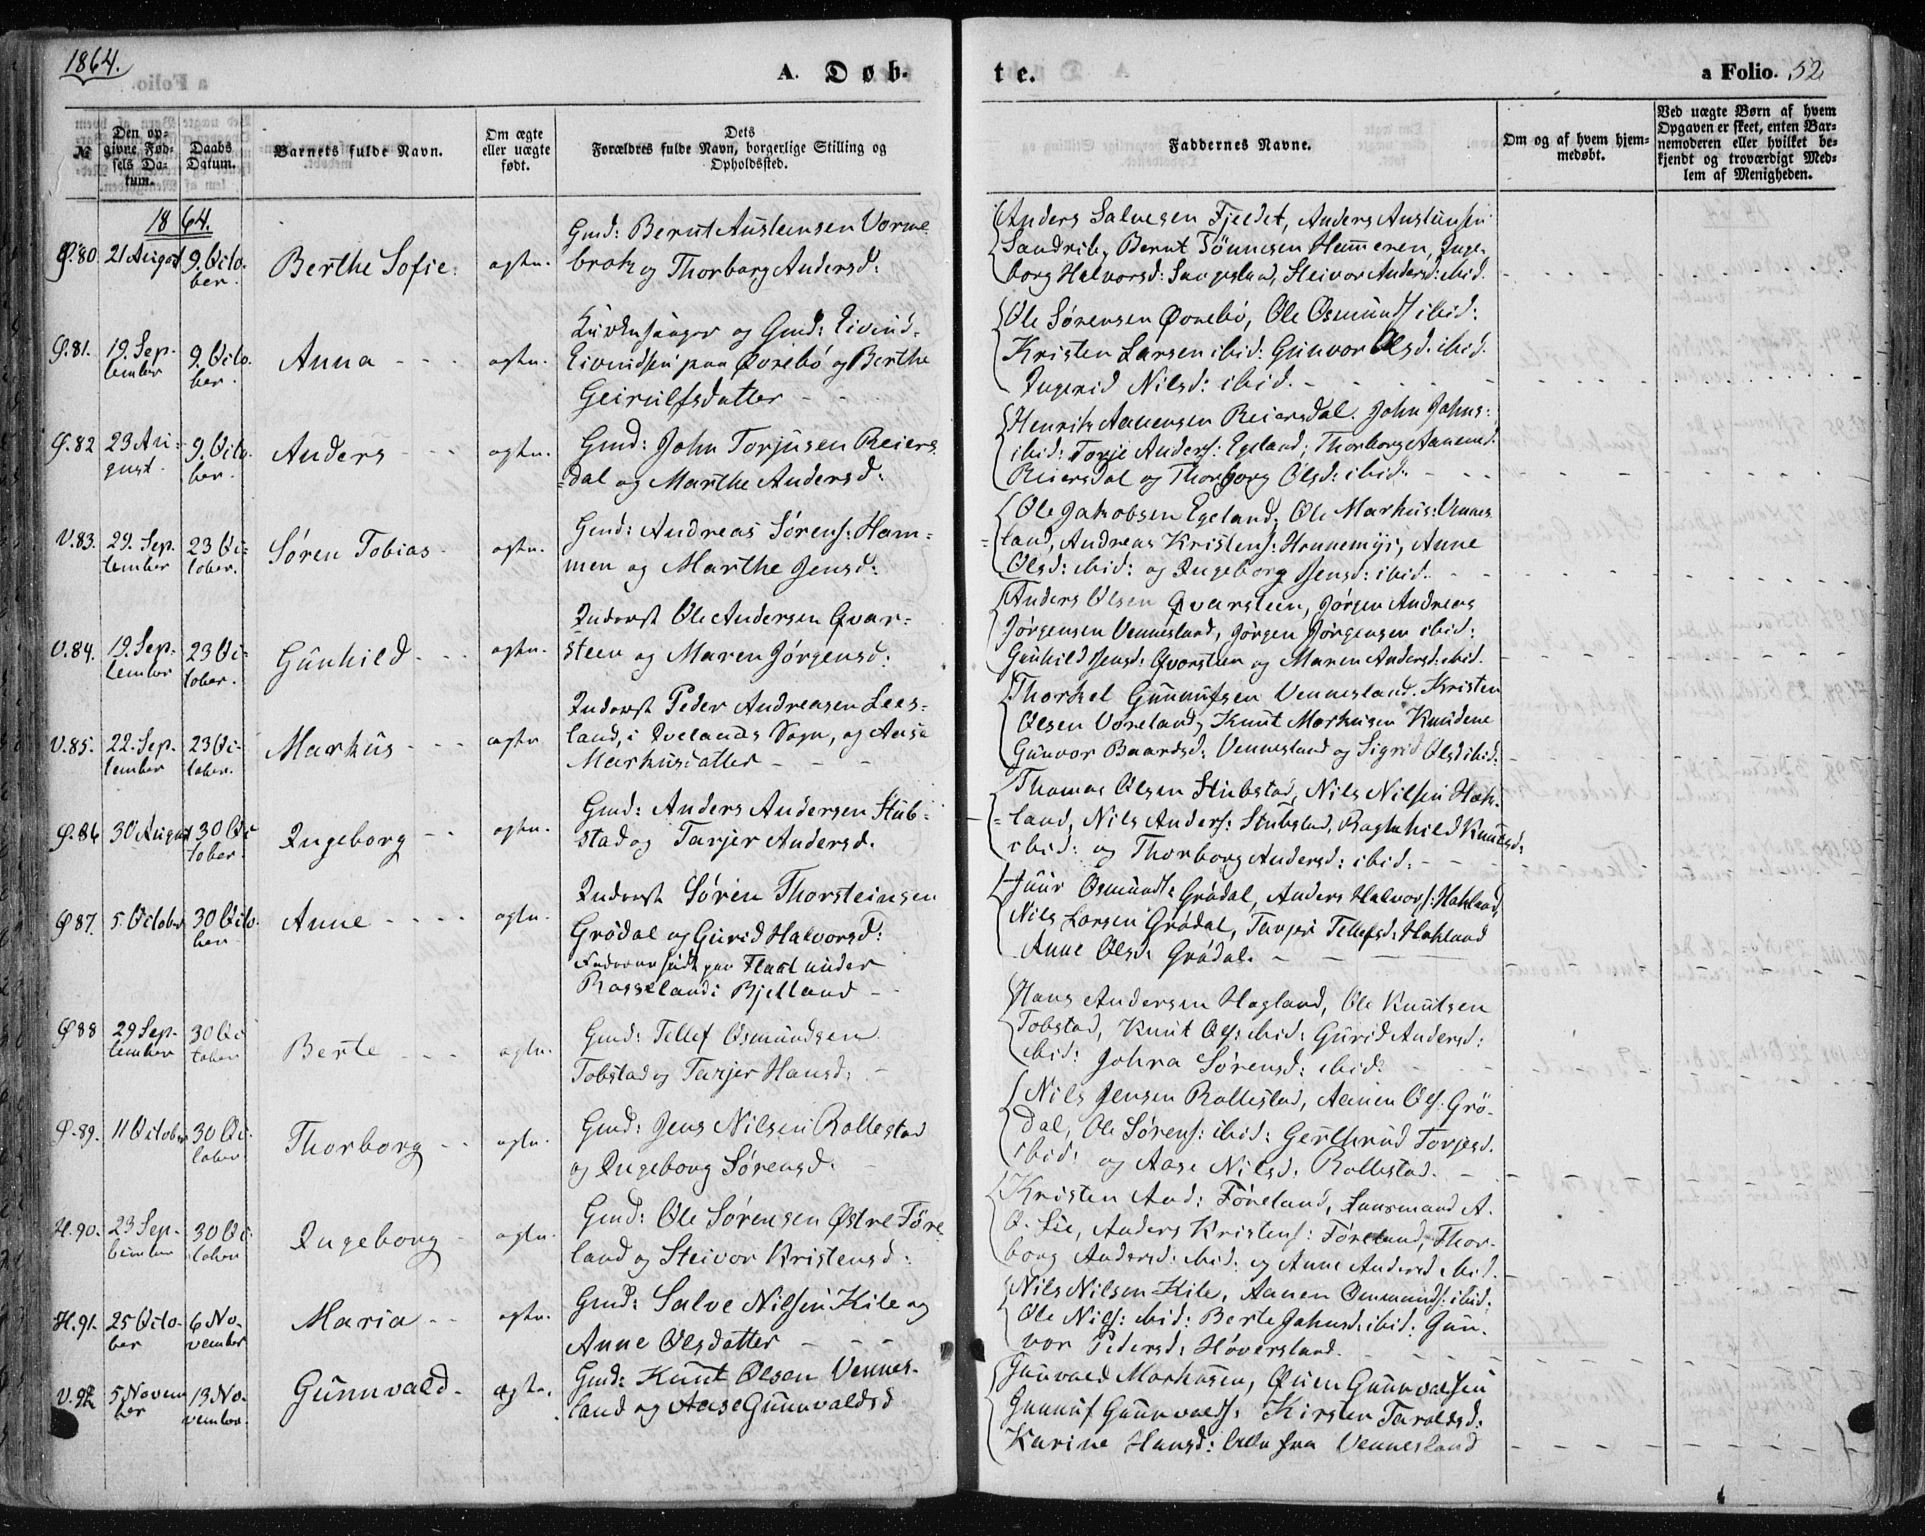 1864.
A. Døb-
te.
a Folio. 52
№
Den op-
givne Fød-
sels Da-
tum.
Daabs
Datum.
Barnets fulde Navn.
Om ægte
eller uægte
født.
Dets
Forældres fulde Navn, borgerlige Stilling og
Opholdssted.
Faddernes Navne.
Om og af hvem hjem-
medøbt.
Ved uægte Børn af hvem
Opgaven er skeet, enten Bar-
nemoderen eller hvilket be-
kjendt og troværdigt Med-
lem af Menigheden.
1864.
Ø.80. 21 August 9. Octo-
ber.
Berthe Sofie.
ægte.
Gmd: Bernt Austensen Vorme-
brok og Thorborg Andersd:
Anders Salvesen Fjeldet, Anders Austensen
Sandrib, Bernt Tönnesen Hommeren, Inge-
borg Halvorsd: Sangesland, Steivor Andersd: ibid.
Ø.81. 19. Sep-
tember 9. Octo-
ber.
Anna
ægte.
Kirkesanger og Gmd: Eivind
Eivindsen paa Øvrebö og Berthe
Geirulfsdatter
Ole Sørensen Øvrebö, Ole Osmunds: ibid:
Kristen Larsen ibid: Gunvor Olsd: ibid.
Ingerid Nilsd: ibid.
Ø.82 23 Au-
gust. 9. Octo-
ber.
Anders
ægte.
Gmd: John Torjusen Reiers-
dal og Marthe Andersd:
Henrik Aanensen Reiersdal. John Johns:
ibid: Torje Anders: Egeland, Thorborg Aanensd:
Reiersdal og Thorborg Olsd: ibid.
V.83. 29. Sep-
tember 23 Oc-
tober.
Søren Tobias
ægte.
Gmd: Andreas Sørens: Ham-
men og Marthe Jensd:
Ole Jakobsen Egeland, Ole Markus: Vennes-
land, Andreas Kristens: Honnemyr, Anne
Olsd: ibid: og Ingeborg Jensd: ibid.
V.84. 19. Sep-
tember 23 Oc-
tober.
Gunhild
ægte.
Inderst Ole Andersen Qvar-
steen og Maren Jörgensd:
Anders Olsen Qvarsteen, Jörgen Andreas
Jörgensen Vennesland, Jörgen Jörgensen ibid:
Gunhild Jensd: Qvarsteen og Maren Andersd: ibid.
V.85. 22. Sep-
tember 23 Oc-
tober.
Markus
ægte
Inderst Peder Andreasen Lees-
land, i Ivelands Sogn, og Anse
Markusdatter
Thorkel Gunnufsen Vennesland. Kristen
Olsen Voreland, Knut Markusen Knudene
Gunvor Baardsd: Vennesland og Sigrid Olsd: ibid:
Ø.86 30 August 30 Oc-
tober.
Ingeborg
ægte.
Gmd: Anders Andersen Stub-
stad og Tarjer Andersd.
Thomas Olsen Stubstad, Nils Nilsen Hok-
land, Nils Anders: Stubstad, Ragnhild Knutsd:
ibid: og Thorborg Andersd: ibid:
Ø 87. 5 October 30 Octo-
ber
Anne
ægte.
Inderst Sören Thorsteinsen
Grödal og Gurid Halvorsd:
Faderen födt paa Flaat under
Rosseland i Bjelland
Juur Osmunds: Grödal, Anders Halvors: Hokland,
Nils Larsen Grödal, Tarjer Tellefsd: Hokland
Anne Olsd: Grödal.
Ø 88 29 Sep-
tember 30 Oc-
tober
Berte
ægte.
Gmd: Tellef Osmundsen
Tobstad og Tarjer Hansd:
Hans Andersen Hogland, Ole Knutsen
Tobstad, Knut Ols: ibid: Gurid Andersd:
ibid: Johra Sörensd: ibid:
Ø.89. 11 October 30 Oc-
tober
Thorborg
ægte.
Gmd: Jens Nilsen Rollestad
og Ingeborg Sörensd.
Nils Jensen Rollestad, Aanen Ols. Grö-
dal, Ole Sörens: ibid: Gerthrud Torjesd.
ibid: og Aase Nilsd: Rollestad.
H.90. 23 Sep-
tember 30 Oc-
tober
Ingeborg
ægte.
Gmd: Ole Sörensen Østre Töre-
land og Steivor Kristensd:
Kristen And: Töreland, Lensmand A.
O. Lie, Anders Kristens: Töreland, Thor-
borg Andersd: ibid: og Anne Andersd: ibid.
H.91. 25 Octo-
ber 6 No-
vember
Maria
ægte.
Gmd: Salve Nilsen Kile og
Anne Olsdatter
Nils Nilsen Kile, Aanen Ommunds: ibid:
Ole Nils: ibid: Berte Johnsd: ibid: Gun-
vor Pedersd: Höversland
V.92 5 Novem-
ber 13 No-
vember.
Gunnvald
ægte.
Gmd: Knut Olsen Vennes-
land og Aase Gunnvaldsd
Gunvald Markusen, Qvien Gunnvalsen
Gunnuf Gunnvalds: Kirsten Taraldsd:
Karine Hansd: Alle fra Vennesland